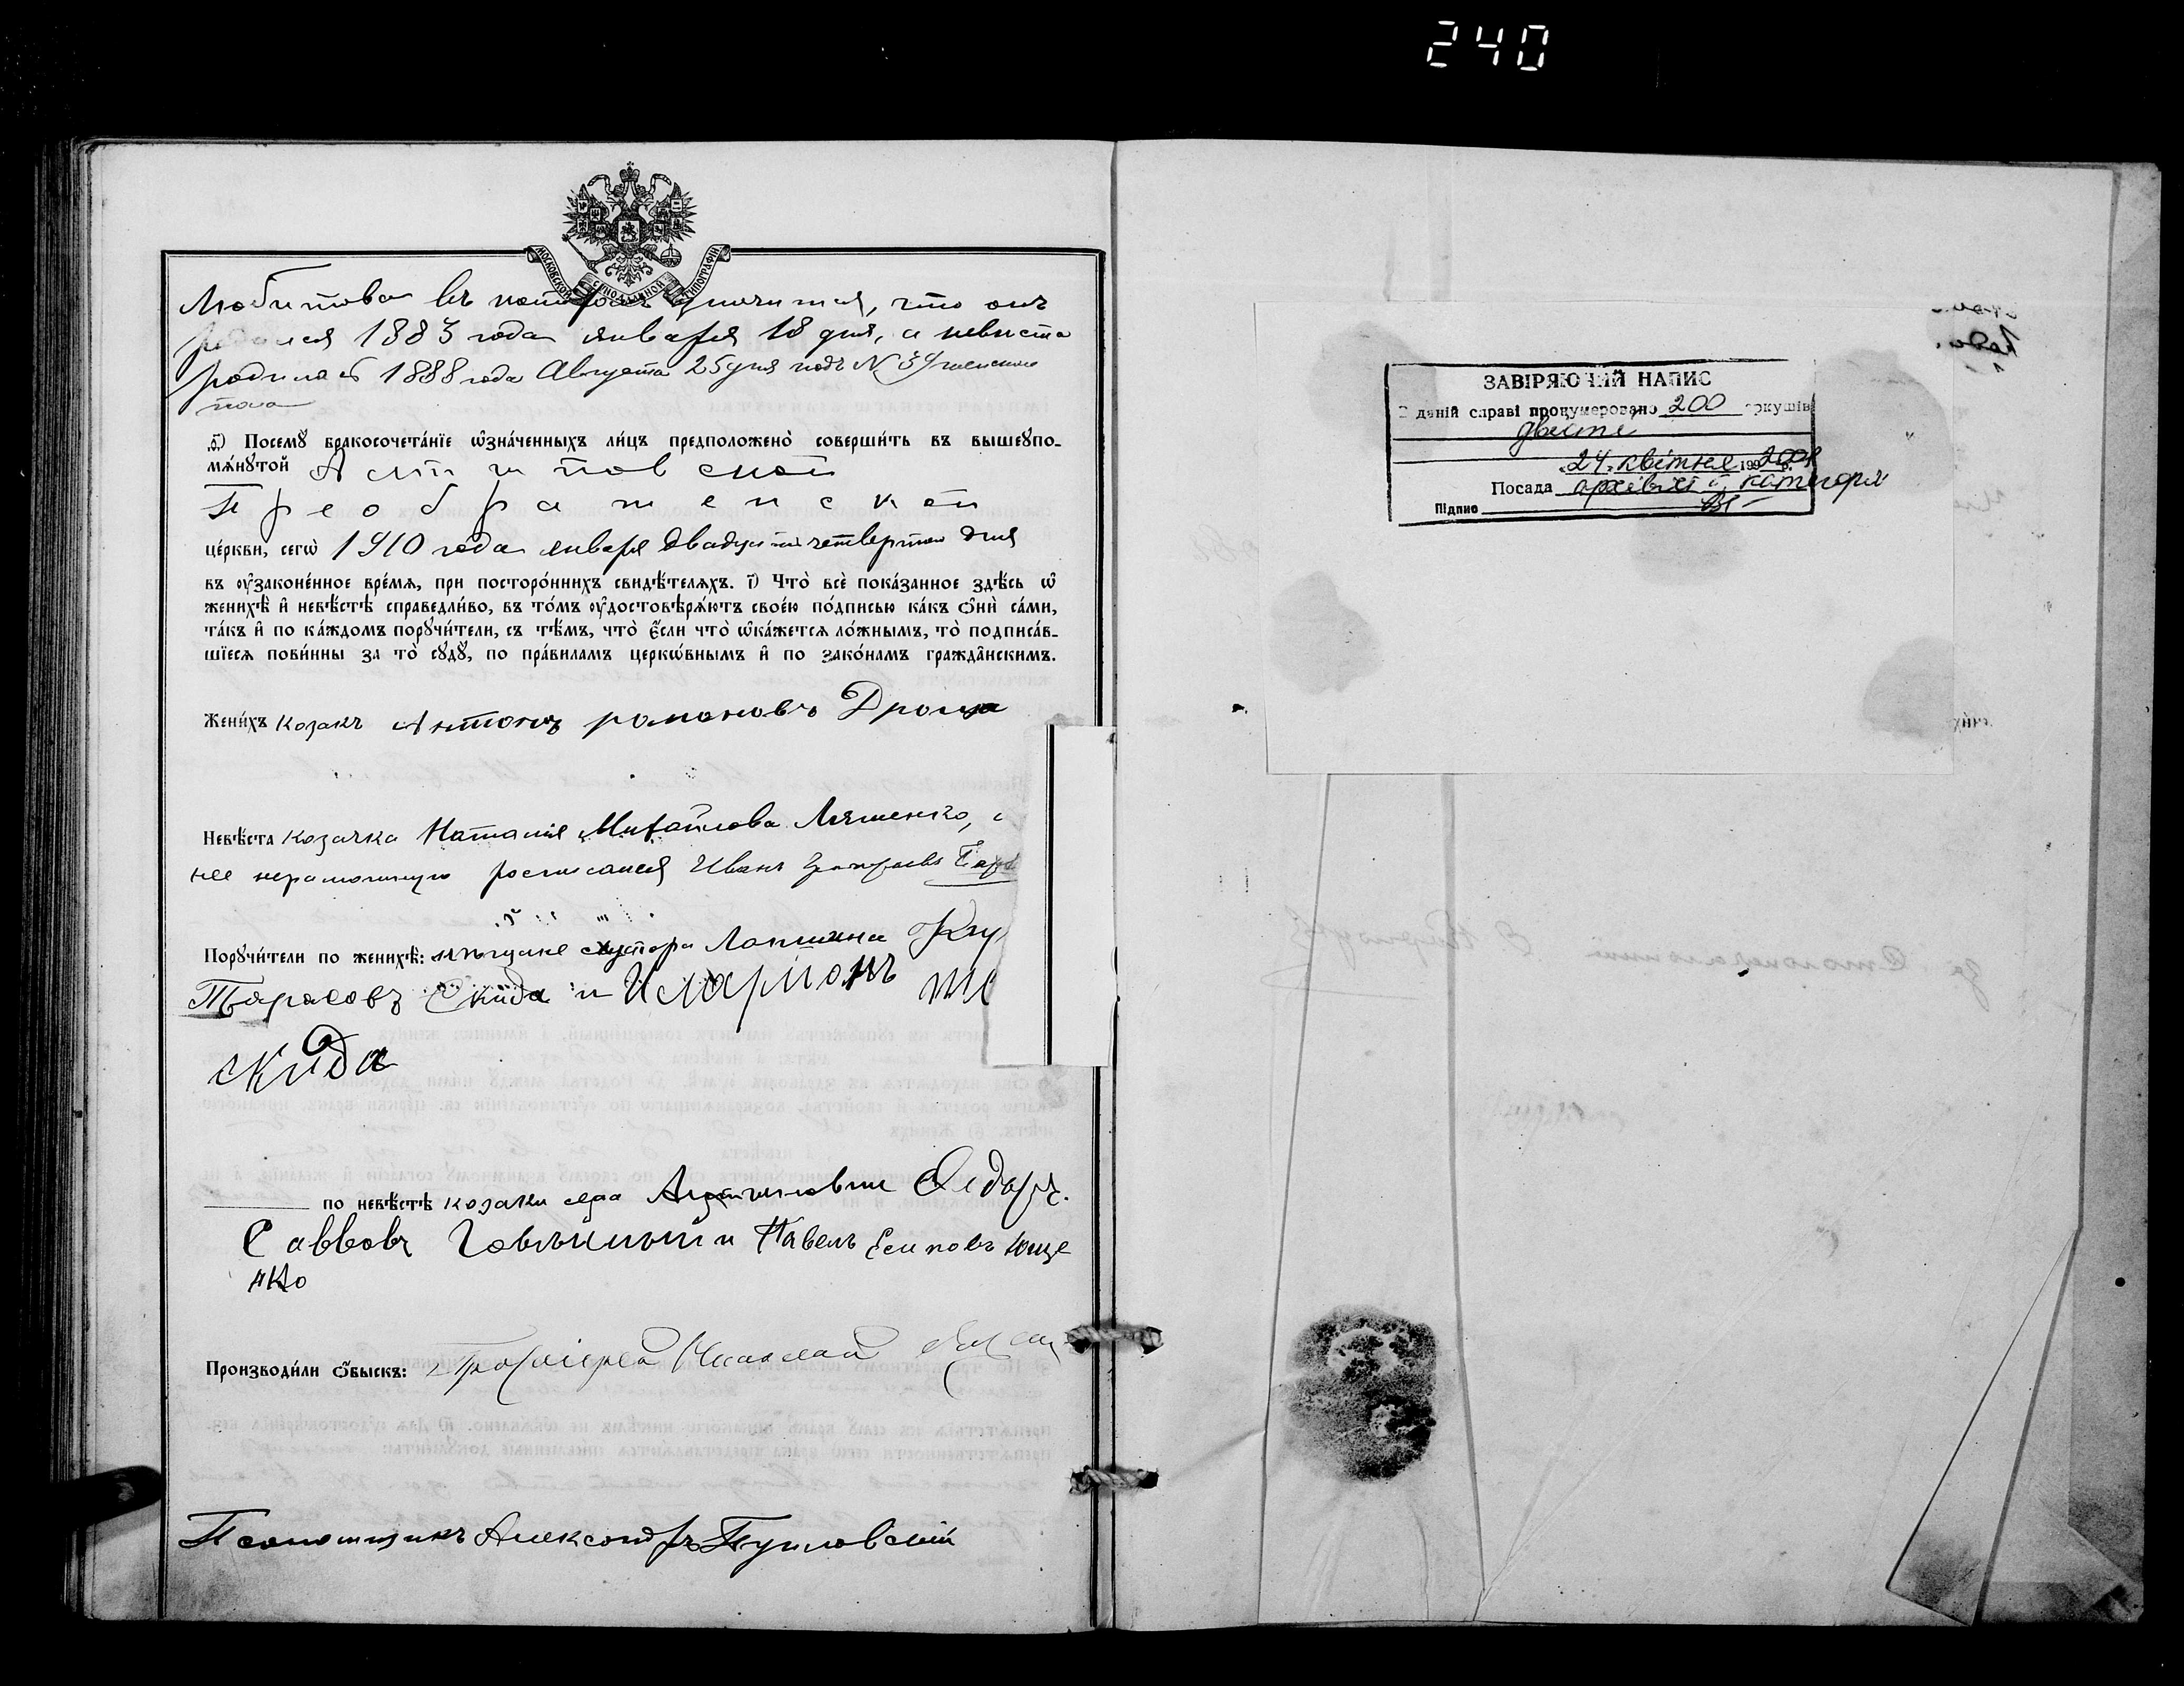 240
МОСКОВСКОЙ СѴНОДАЛЬНОЙ ТИПОГРАФІИ
Любитова въ которомъ значится, что онъ
родился 1883 года января 18 дня, а невѣста
родилась 1888 года Августа 25 дня подъ N 34 женскаго
пола
Посемꙋ̀ бракосочета́нїе ѡ҆зна́ченныхъ ли́цъ предположено̀ соверши́ть въ вышеꙋпо-
мѧ́нꙋтой
Преображенской
це́ркви, сегѡ̀ 1910 года января двадцать четвертаго дня
въ ᲂу҆законе́нное вре́мѧ, при посторо́ннихъ свидѣ́телѧхъ. і҃) Что̀ всѐ пока́занное здѣ́сь ѡ҆
женихѣ̀ и҆ невѣ́стѣ справедли́во, въ то́мъ ᲂу҆достовѣрѧ́ютъ свое́ю по́дписью ка́къ ѻ҆нѝ са́ми,
та́къ и҆ по ка́ждомъ порꙋчи́тели, съ тѣ́мъ, что̀ є҆́сли что̀ ѡ҆ка́жетсѧ ло́жнымъ, то̀ подписа́в-
шїесѧ пови́нны за то̀ сꙋдꙋ̀, по пра́виламъ церкѡ́внымъ и҆ по зако́намъ гражда̂нскимъ.
Жени́хъ козакъ Антонъ романовъ Дроща
Невѣ́ста козачка Наталія Михайлова Ляшенко,
нее неграмотную росписался Иванъ Григорьевъ
Порꙋчи́тели по женихѣ̀: хутора Лопшина
Тарасовъ Скида и Иларіонъ
скида
по невѣ́стѣ козаки села Федоръ
Савовъ и Павелъ Есиповъ Юще
нко
Производи́ли ѻ҆́быскъ: Протоіерей Николай
Псаломщикъ Александръ Путловскій
ЗАВІРЯЮЧИЙ НАПИС
В даній справі пронумеровано 200 аркушів
двести
„24„ квітня 199 2001 р.
Посада архівіст II категорії
Підпис